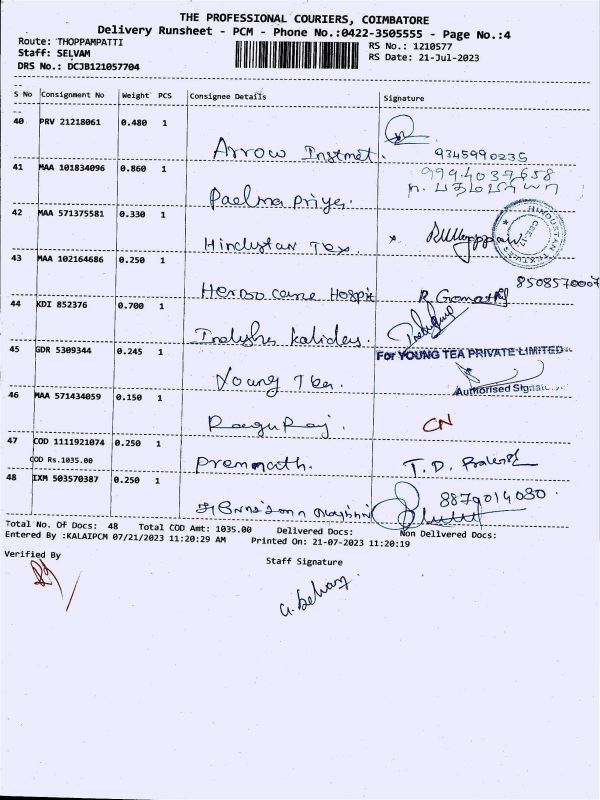 THE PROFESSIONAL COURIERS, COIMBATORE
Delivery Runsheet - PCM - Phone No.:0422-3505555 - Page No.:4
Route: THOPPAMPATTI
RS No.: 1210577
Staff: SELVAM
RS Date: 21-Jul-2023
DRS No.: DCJB121057704
S No Consignment No Weight PCS Consignee Details Signature
40 PRV 21218061 0.480 1
Arrow Instmet. 9345990235
41 MAA 101834096 0.860 1
9994037658
Padma Priya. n. பத்மபிரியா
42 MAA 571375581 0.330 1
Hindustan Tex x.
HINDUSTAN
43 MAA 102164686 0.250 1
8508570007
Heroo care Hospit R. Gomathi
44 KDI 852376 0.700 1
Kalidas.
45 GDR 5309344 0.245 1
For YOUNG TEA PRIVATE LIMITED
Young Tea.
Authorised Signat
46 MAA 571434059 0.150 1
Ragu Raj. CN
47 COD 1111921074 0.250 1
COD Rs.1035.00
Premnath. T. D.
48 IXM 503570387 0.250 1
8879014080
Total No. Of Docs: 48 Total COD Amt: 1035.00 Delivered Docs: Non Delivered Docs:
Entered By :KALAIPCM 07/21/2023 11:20:29 AM Printed On: 21-07-2023 11:20:19
Verified By
Staff Signature
a. Selvam